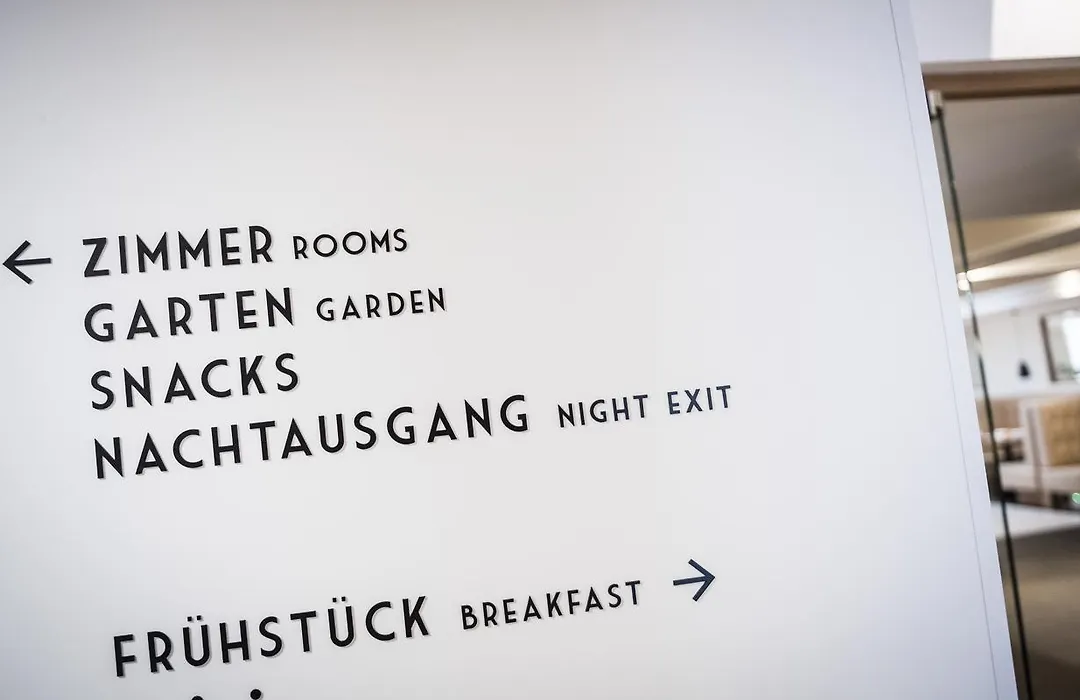 ← ZIMMER ROOMS
GARTEN GARDEN
SNACKS
NACHTAUSGANG NIGHT EXIT
FRÜHSTÜCK BREAKFAST →